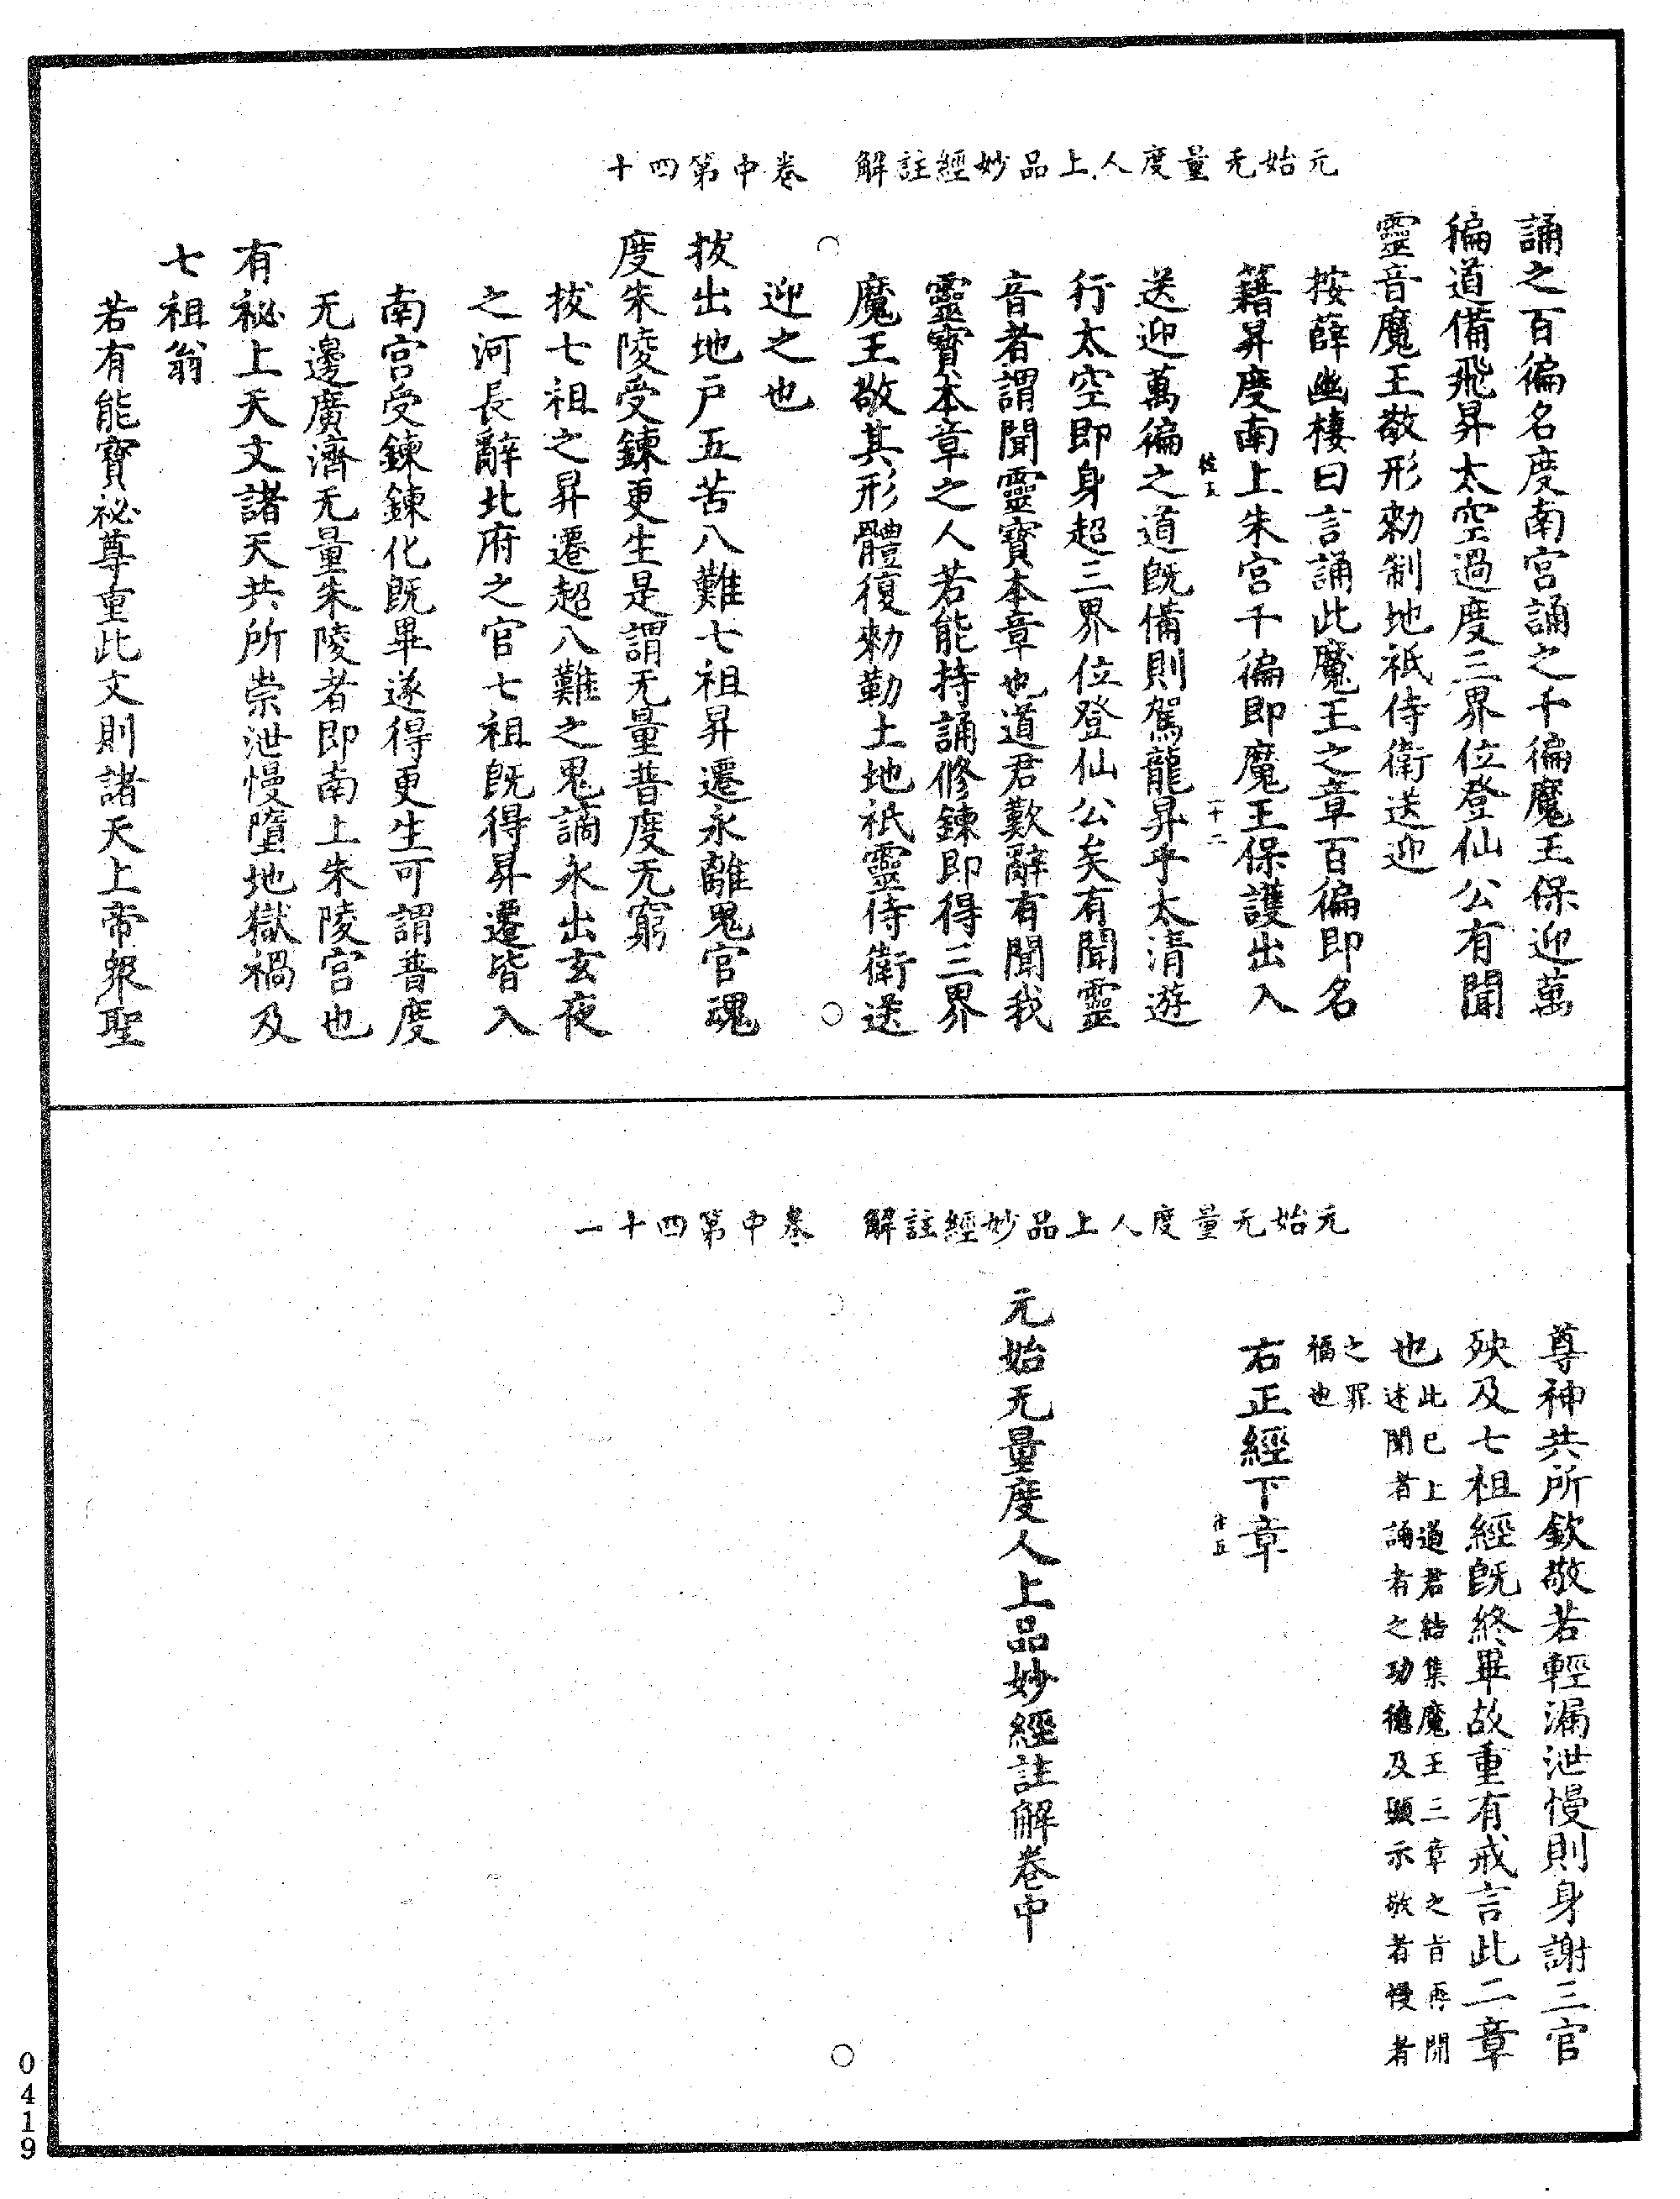 元始无量度人上品妙經註解　卷中第四十
誦之百徧名度南宮誦之千徧魔王保迎萬
徧道備飛昇太空過度三界位登仙公有聞
靈音魔王敬形勑制地祇侍衛送迎
按薛幽棲曰言誦此魔王之章百徧即名
籍昇度南上朱宮千徧即魔王保護出入
二十二
送迎萬徧之道既備則駕龍昇乎太清遊
行太空即身超三界位登仙公矣有聞靈
音者謂聞靈寶本章也道君歎辭有聞我
靈寶本章之人若能持誦修鍊即得三界
魔王敬其形體復勑勒土地祇靈侍衛送
迎之也
拔出地戶五苦八難七祖昇遷永離鬼官魂
度朱陵受鍊更生是謂无量普度无窮
拔七祖之昇遷超八難之鬼謫永出玄夜
之河長辭北府之官七祖既得昇遷皆入
南宮受鍊鍊化既畢遂得更生可謂普度
无邊廣濟无量朱陵者即南上朱陵宮也
有祕上天文諸天共所崇泄慢墮地獄禍及
七祖翁
若有能寶祕尊重此文則諸天上帝眾聖
元始无量度人上品妙經註解　卷中第四十一
尊神共所欽敬若輕漏泄慢則身謝三官
殃及七祖經既終畢故重有戒言此二章
也此已上道君結集魔王三章之旨再開
述聞者誦者之功德及顯示敬者慢者
之罪
福也
右正經下章
元始无量度人上品妙經註解卷中
0419